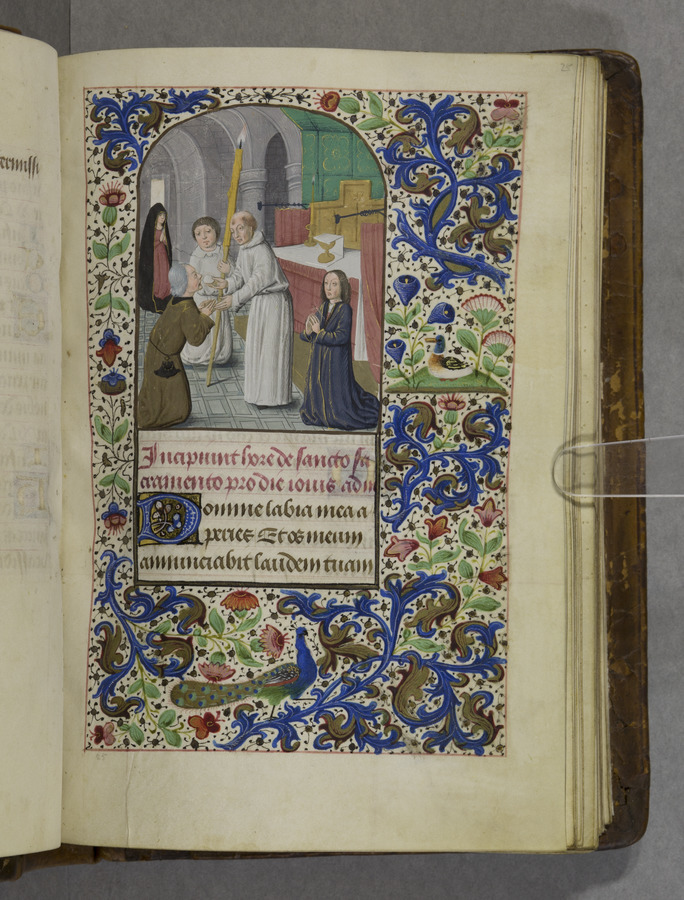 25
ermissi
Incipiunt hore de sancto sa
cramento pro die iouis ad m
Domine labia mea a
peries Et os meum
annunciabit laudem tuam